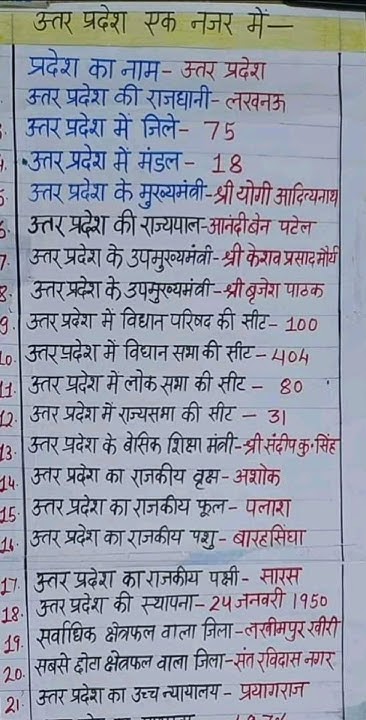 उत्तर प्रदेश एक नजर में—
प्रदेश का नाम- उत्तर प्रदेश
उत्तर प्रदेश की राजधानी- लखनऊ
उत्तर प्रदेश में जिले- 75
4. उत्तर प्रदेश में मंडल- 18
5. उत्तर प्रदेश के मुख्यमंत्री-श्री योगी आदित्यनाथ
6. उत्तर प्रदेश की राज्यपाल-आनंदीबेन पटेल
7. उत्तर प्रदेश के उपमुख्यमंत्री-श्री केशव प्रसाद मौर्य
8. उत्तर प्रदेश के उपमुख्यमंत्री-श्री बृजेश पाठक
9. उत्तर प्रदेश में विधान परिषद की सीट- 100
10. उत्तर प्रदेश में विधान सभा की सीट- 404
11. उत्तर प्रदेश में लोक सभा की सीट - 80
12. उत्तर प्रदेश में राज्यसभा की सीट - 31
13. उत्तर प्रदेश के बेसिक शिक्षा मंत्री-श्री संदीप कु॰ सिंह
14. उत्तर प्रदेश का राजकीय वृक्ष- अशोक
15. उत्तर प्रदेश का राजकीय फूल- पलाश
16. उत्तर प्रदेश का राजकीय पशु- बारहसिंघा
17. उत्तर प्रदेश का राजकीय पक्षी- सारस
18. उत्तर प्रदेश की स्थापना- 24 जनवरी 1950
19. सर्वाधिक क्षेत्रफल वाला जिला-लखीमपुर खीरी
20. सबसे छोटा क्षेत्रफल वाला जिला-संत रविदास नगर
21. उत्तर प्रदेश का उच्च न्यायालय- प्रयागराज